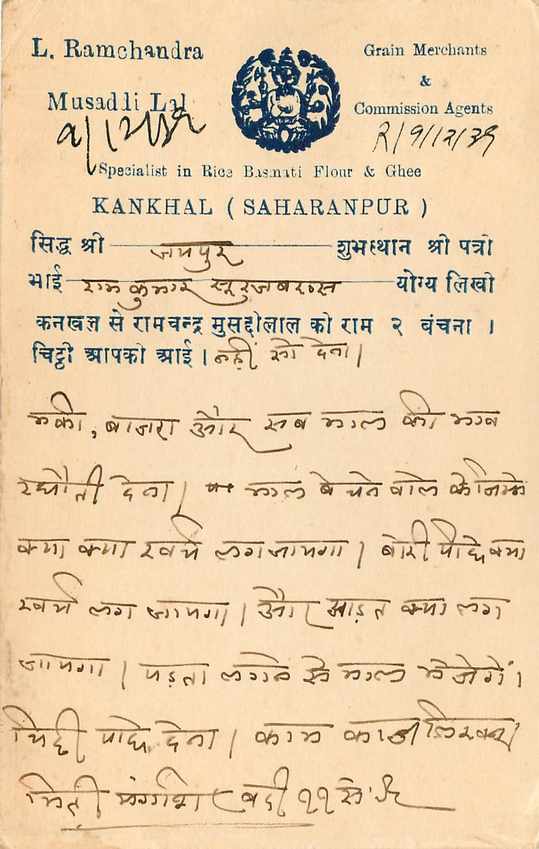 L. Ramchandra
Grain Merchants
&
Musaddi Lal
Commission Agents
R/9/12/39
Specialist in Rice Basmati Flour & Ghee
KANKHAL ( SAHARANPUR )
सिद्ध श्री जयपुर शुभस्थान श्री पत्री
भाई राम कुमार सूरजबख्स योग्य लिखी
कनखल से रामचन्द्र मुसद्दीलाल की राम २ बंचना ।
चिट्ठी आपकी आई । नहीं सो देना।
मकी, बाजरा और सब माल की भाव
देना। माल बेचने वाले के जिम्मे
क्या क्या खर्च लग जायगा। बोरी पीछे क्या
खर्च लग जायगा। और आड़त क्या लग
जायगा। पड़ता लगने से माल भेजेगें।
चिट्ठी पीछे देना। काम काज लिखना
मिती मंगशिर बदी ११ सं.